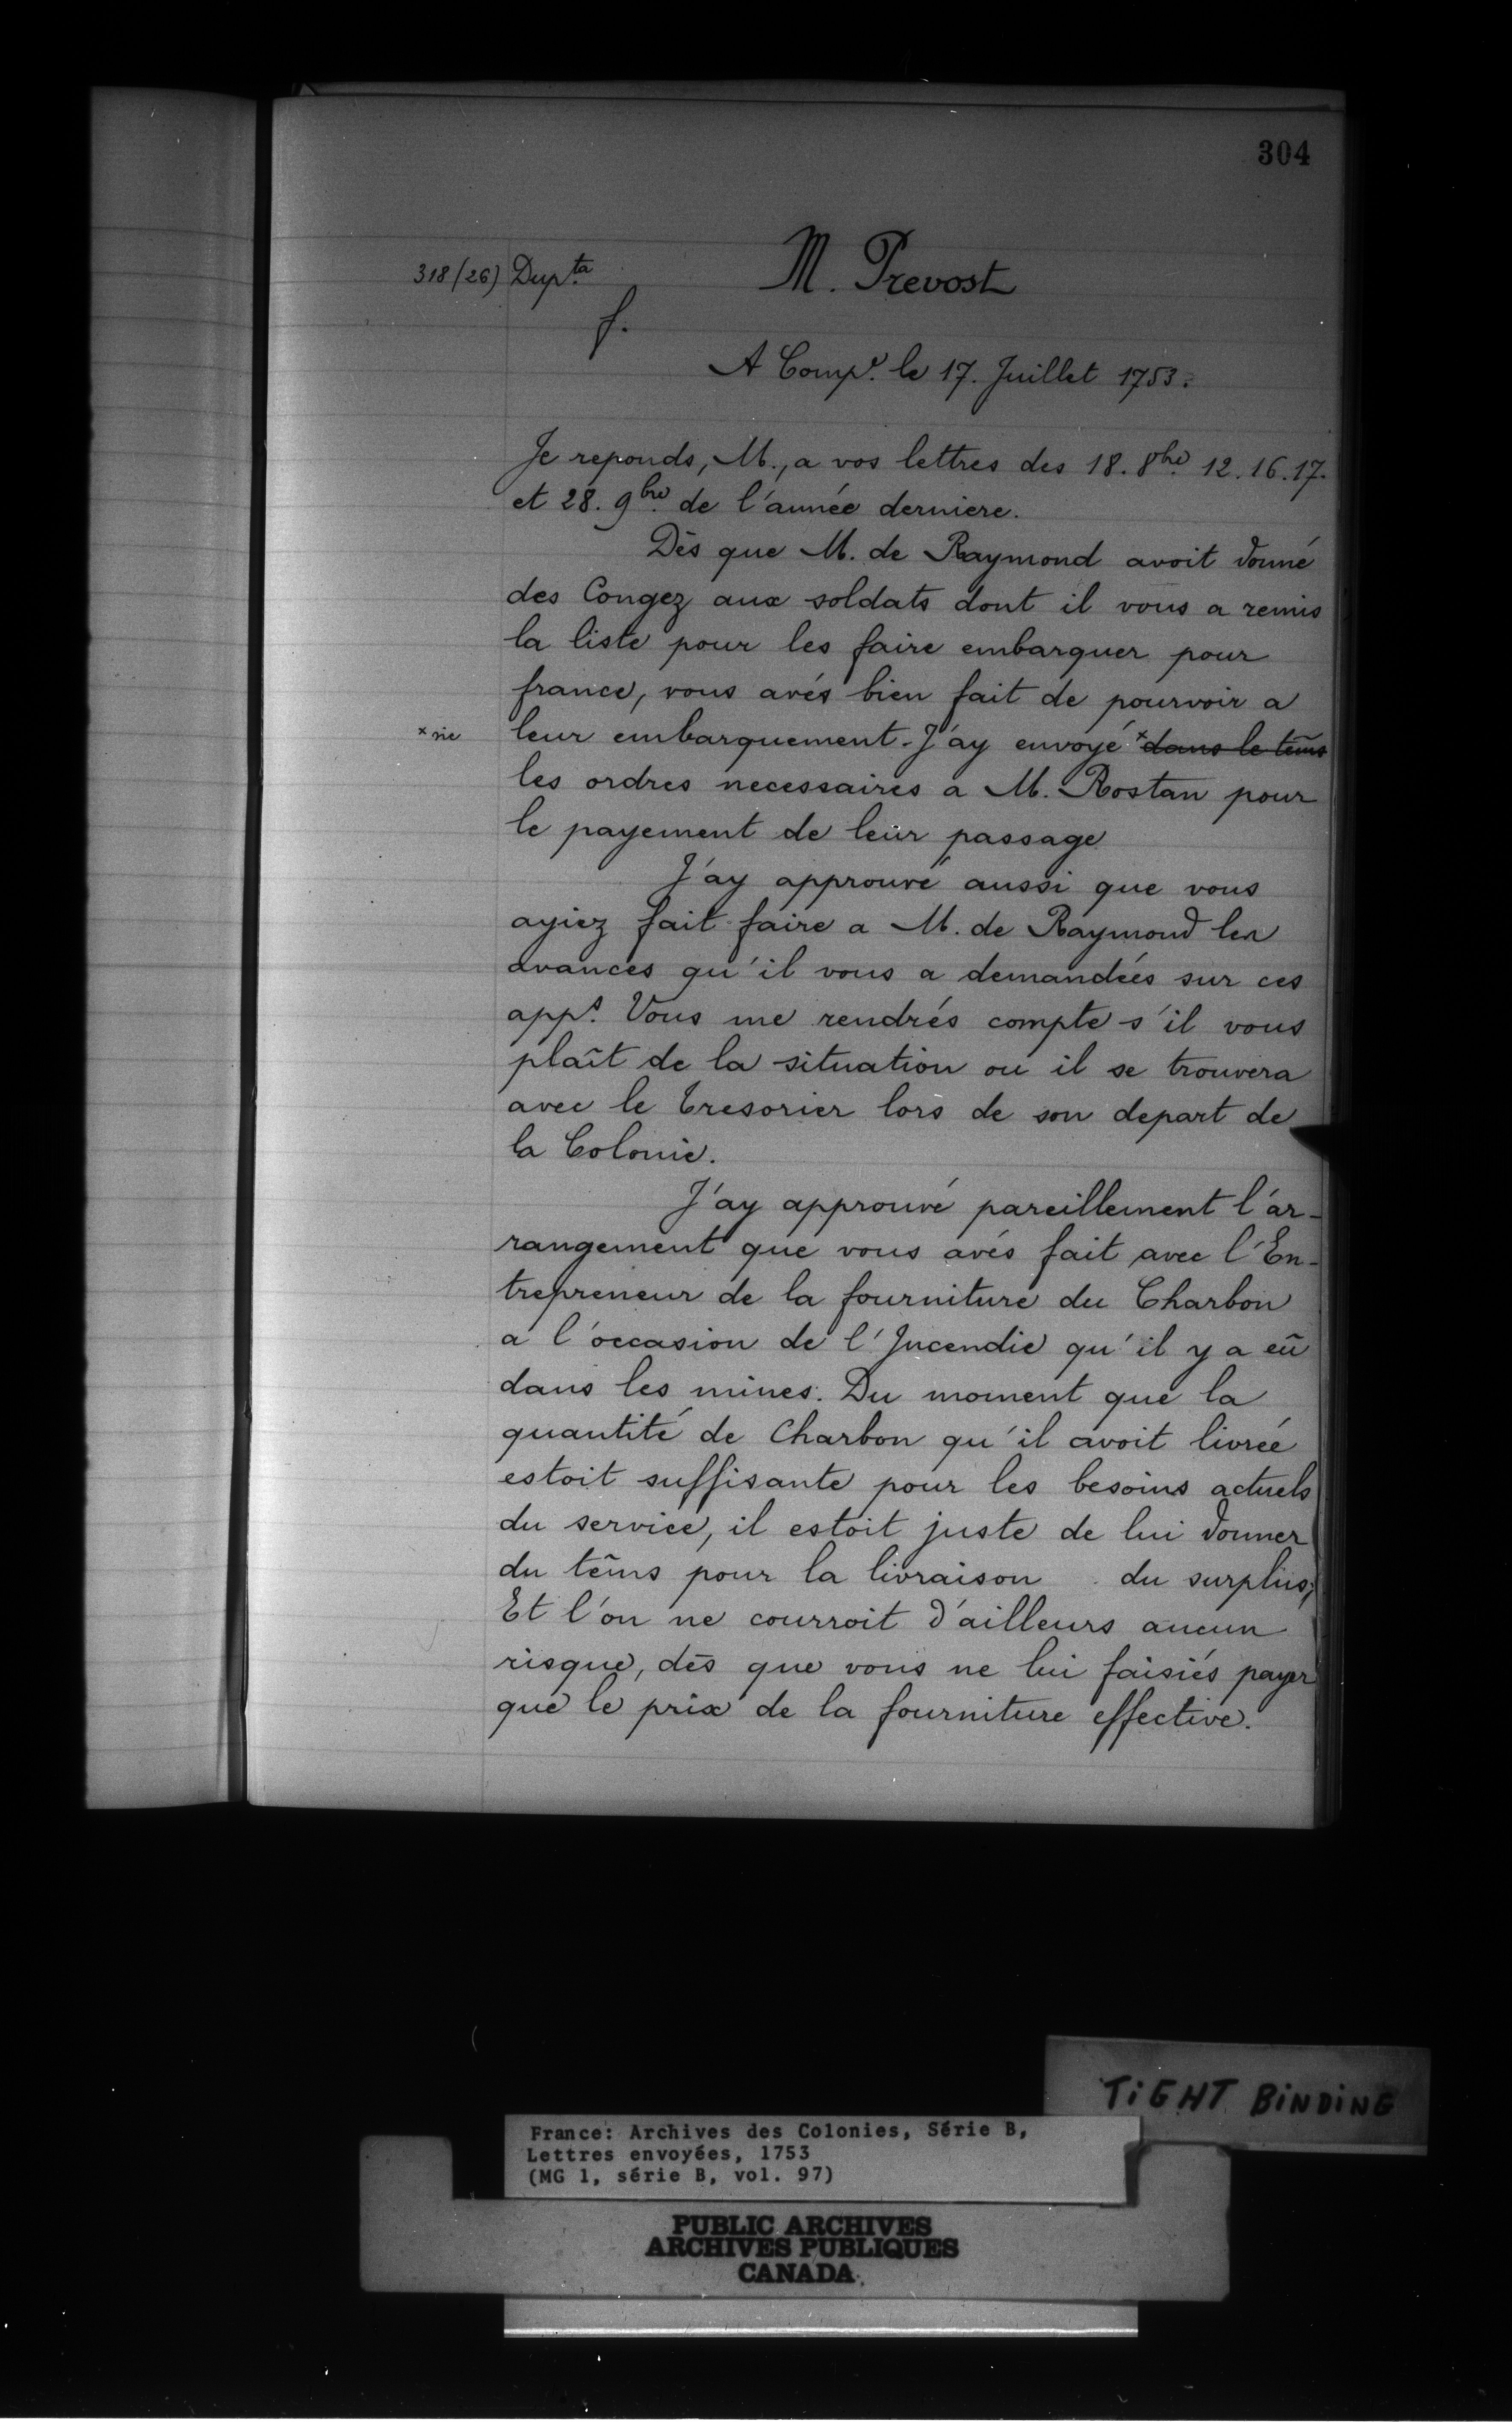 304
318 (26) Dup.ta M. Prevost
f.
A Comp.e le 17. Juillet 1753.
Je reponds, M., a vos lettres des 18. 8bre 12. 16. 17.
et 28. 9bre de l'année derniere.
Dès que M. de Raymond avoit donné
des Congez aux soldats dont il vous a remis
la liste pour les faire embarquer pour
france, vous avés bien fait de pourvoir a
x sic leur embarquement. J'ay envoyé x dans le tem̃s
les ordres necessaires a M. Rostan pour
le payement de leur passage
J'ay approuvé aussi que vous
ayiez fait faire a M. de Raymond les
avances qu'il vous a demandées sur ces
app.s Vous me rendrés compte s'il vous
plaît de la situation ou il se trouvera
avec le tresorier lors de son depart de
la Colonie.
J'ay approuvé pareillement l'ar-
rangement que vous avés fait avec l'En-
trepreneur de la fourniture du Charbon
a l'occasion de l'Incendie qu'il y a eû
dans les mines. Du moment que la
quantité de Charbon qu'il avoit livrée
estoit suffisante pour les besoins actuels
du service, il estoit juste de lui donner
du tem̃s pour la livraison du surplus;
Et l'on ne courroit d'ailleurs aucun
risque, dès que vous ne lui faisiés payer
que le prix de la fourniture effective.
TIGHT BINDING
France: Archives des Colonies, Série B,
Lettres envoyées, 1753
(MG 1, série B, vol. 97)
PUBLIC ARCHIVES
ARCHIVES PUBLIQUES
CANADA